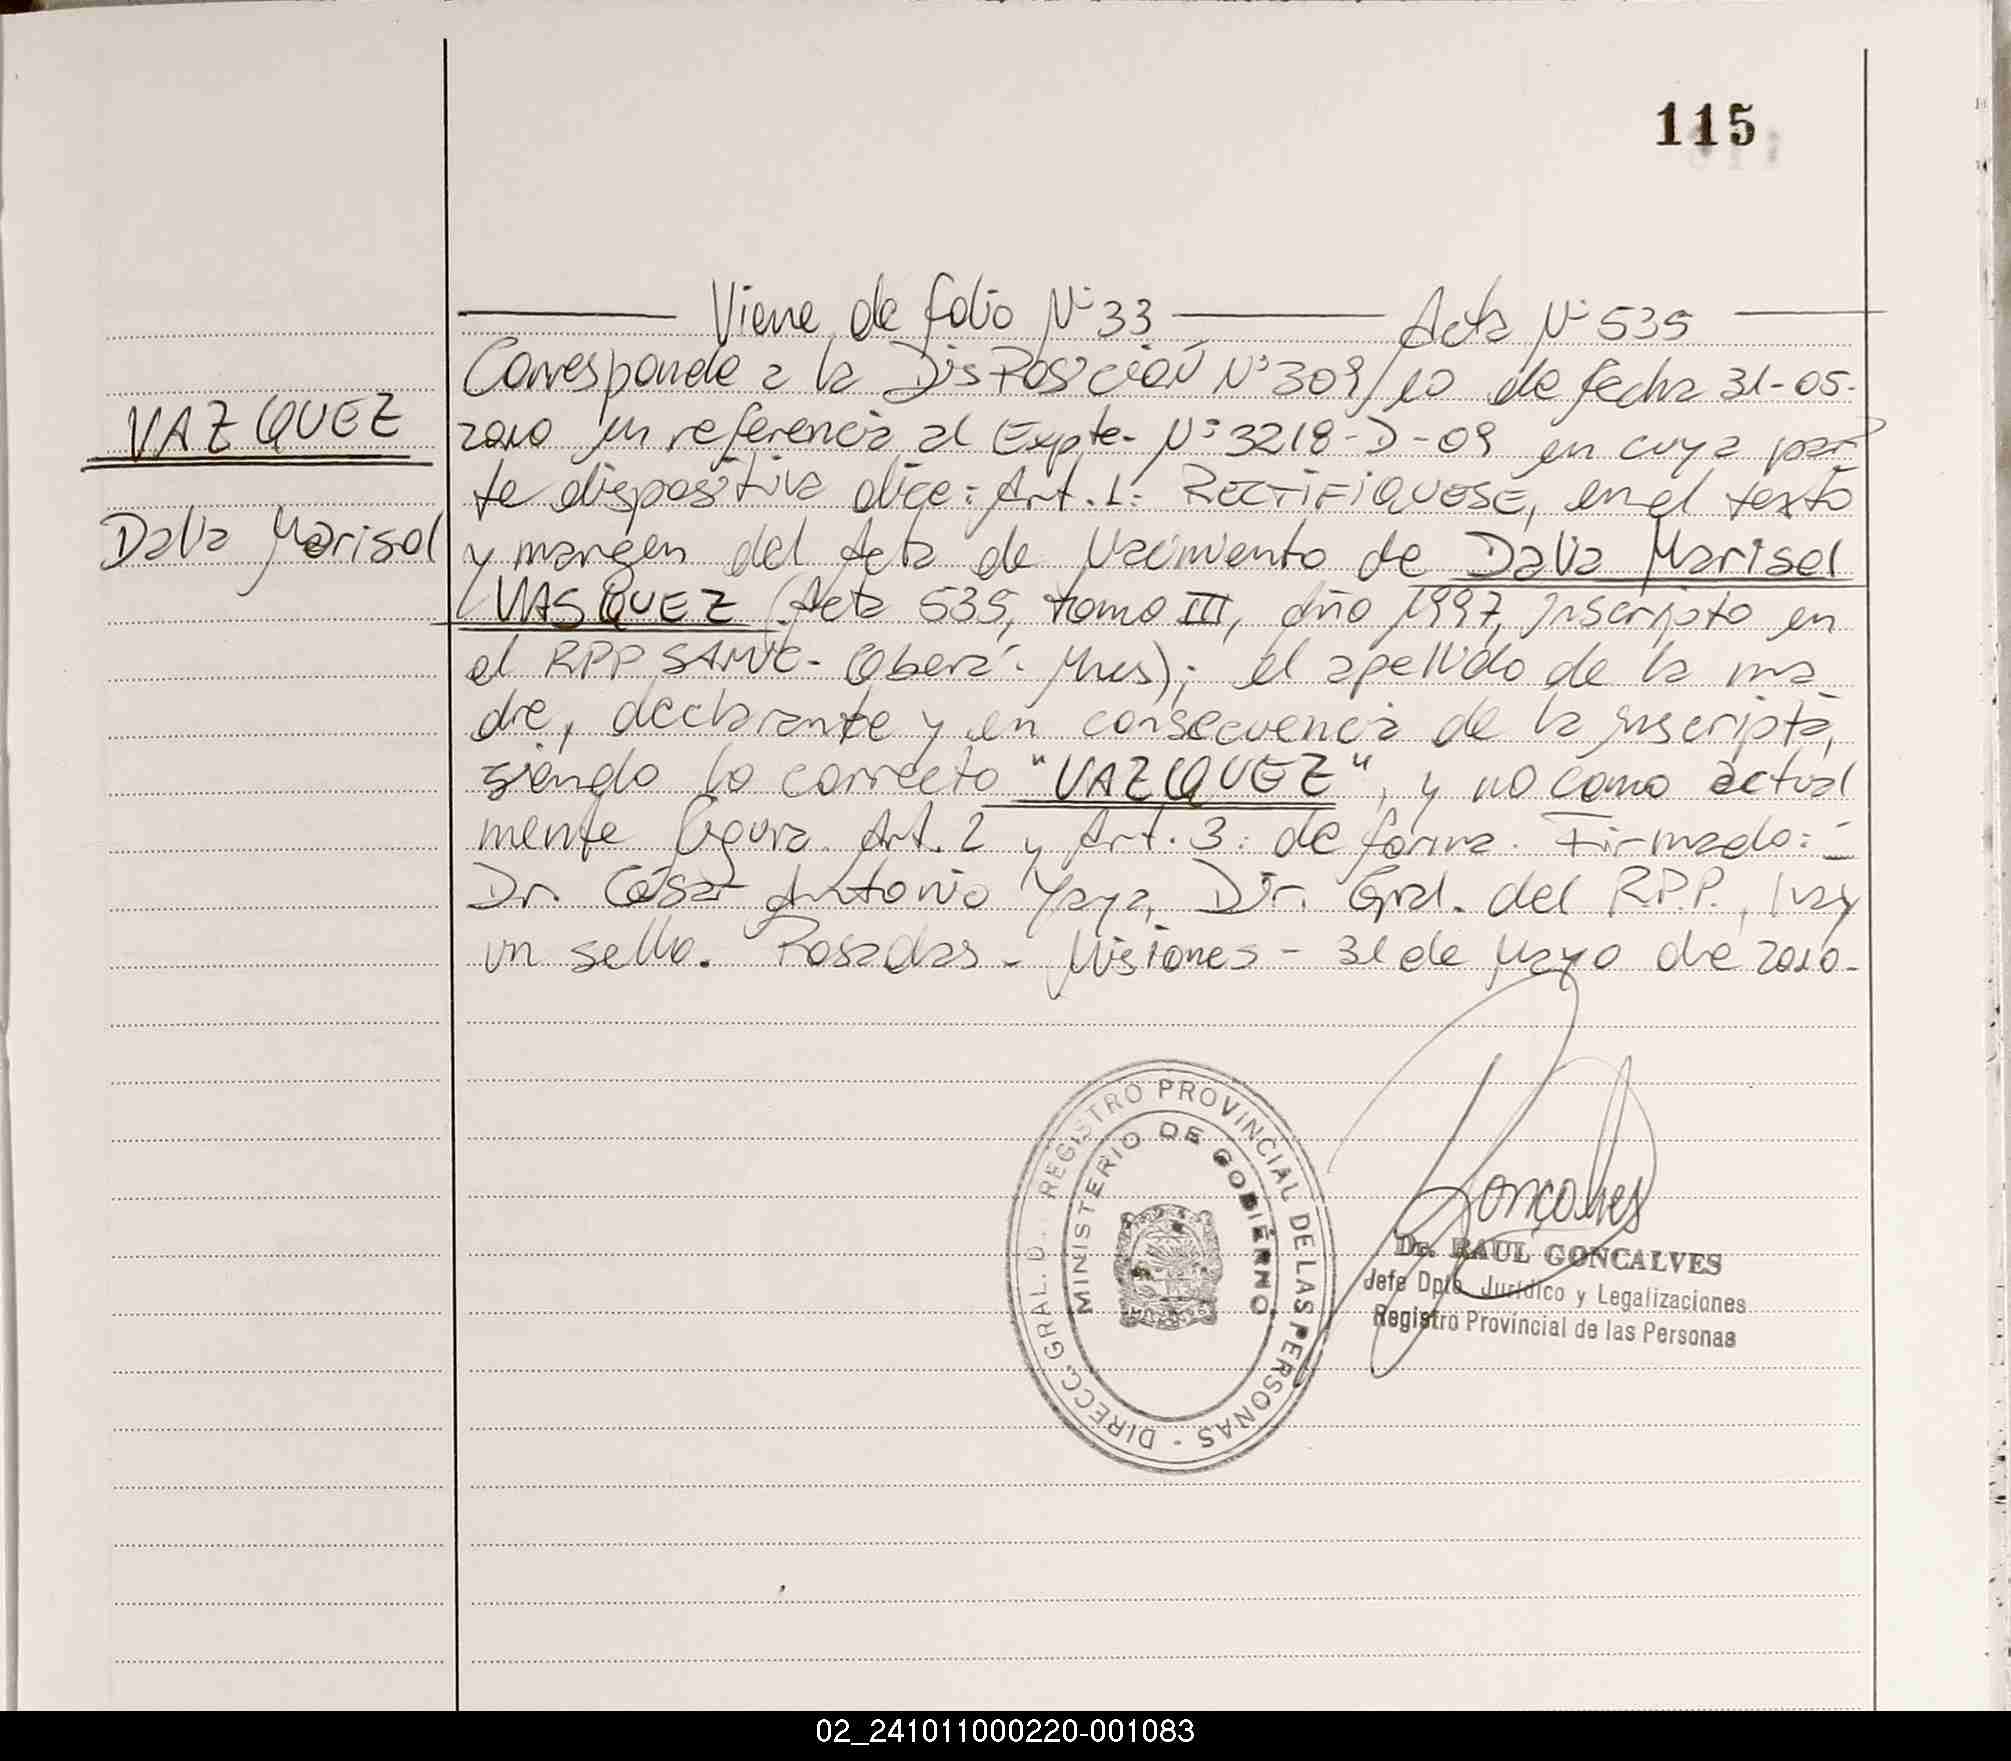 115
Viene de folio N° 33 Acta N° 535
Corresponde a la DISPOSICIÓN N° 309/10 de fecha 31-05-
VAZQUEZ
2010 en referencia al Expte. N° 3218-D-09 en cuya par
te dispositiva dice: Art. 1: RECTIFIQUESE, en el texto
Dalia Marisol
y margen del Acta de Nacimiento de Dalia Marisol
VASQUEZ (Acta 535, tomo III, año 1997, inscripto en
el RPP SAMIC - Oberá - Mnes); el apellido de la ma
dre, declarante y en consecuencia de la inscripta,
siendo lo correcto "VAZQUEZ", y no como actual
mente figura. Art. 2 y Art. 3: de forma. Firmado: -
Dr. César Antonio Yaya, Dir. Gral. del R.P.P., hay
un sello. Posadas - Misiones - 31 de Mayo de 2010-
DIRECC. GRAL. D. REGISTRO PROVINCIAL DE LAS PERSONAS -
MINISTERIO DE GOBIERNO
Goncalves
Dr. RAUL GONCALVES
Jefe Dpto. Jurídico y Legalizaciones
Registro Provincial de las Personas
02_241011000220-001083